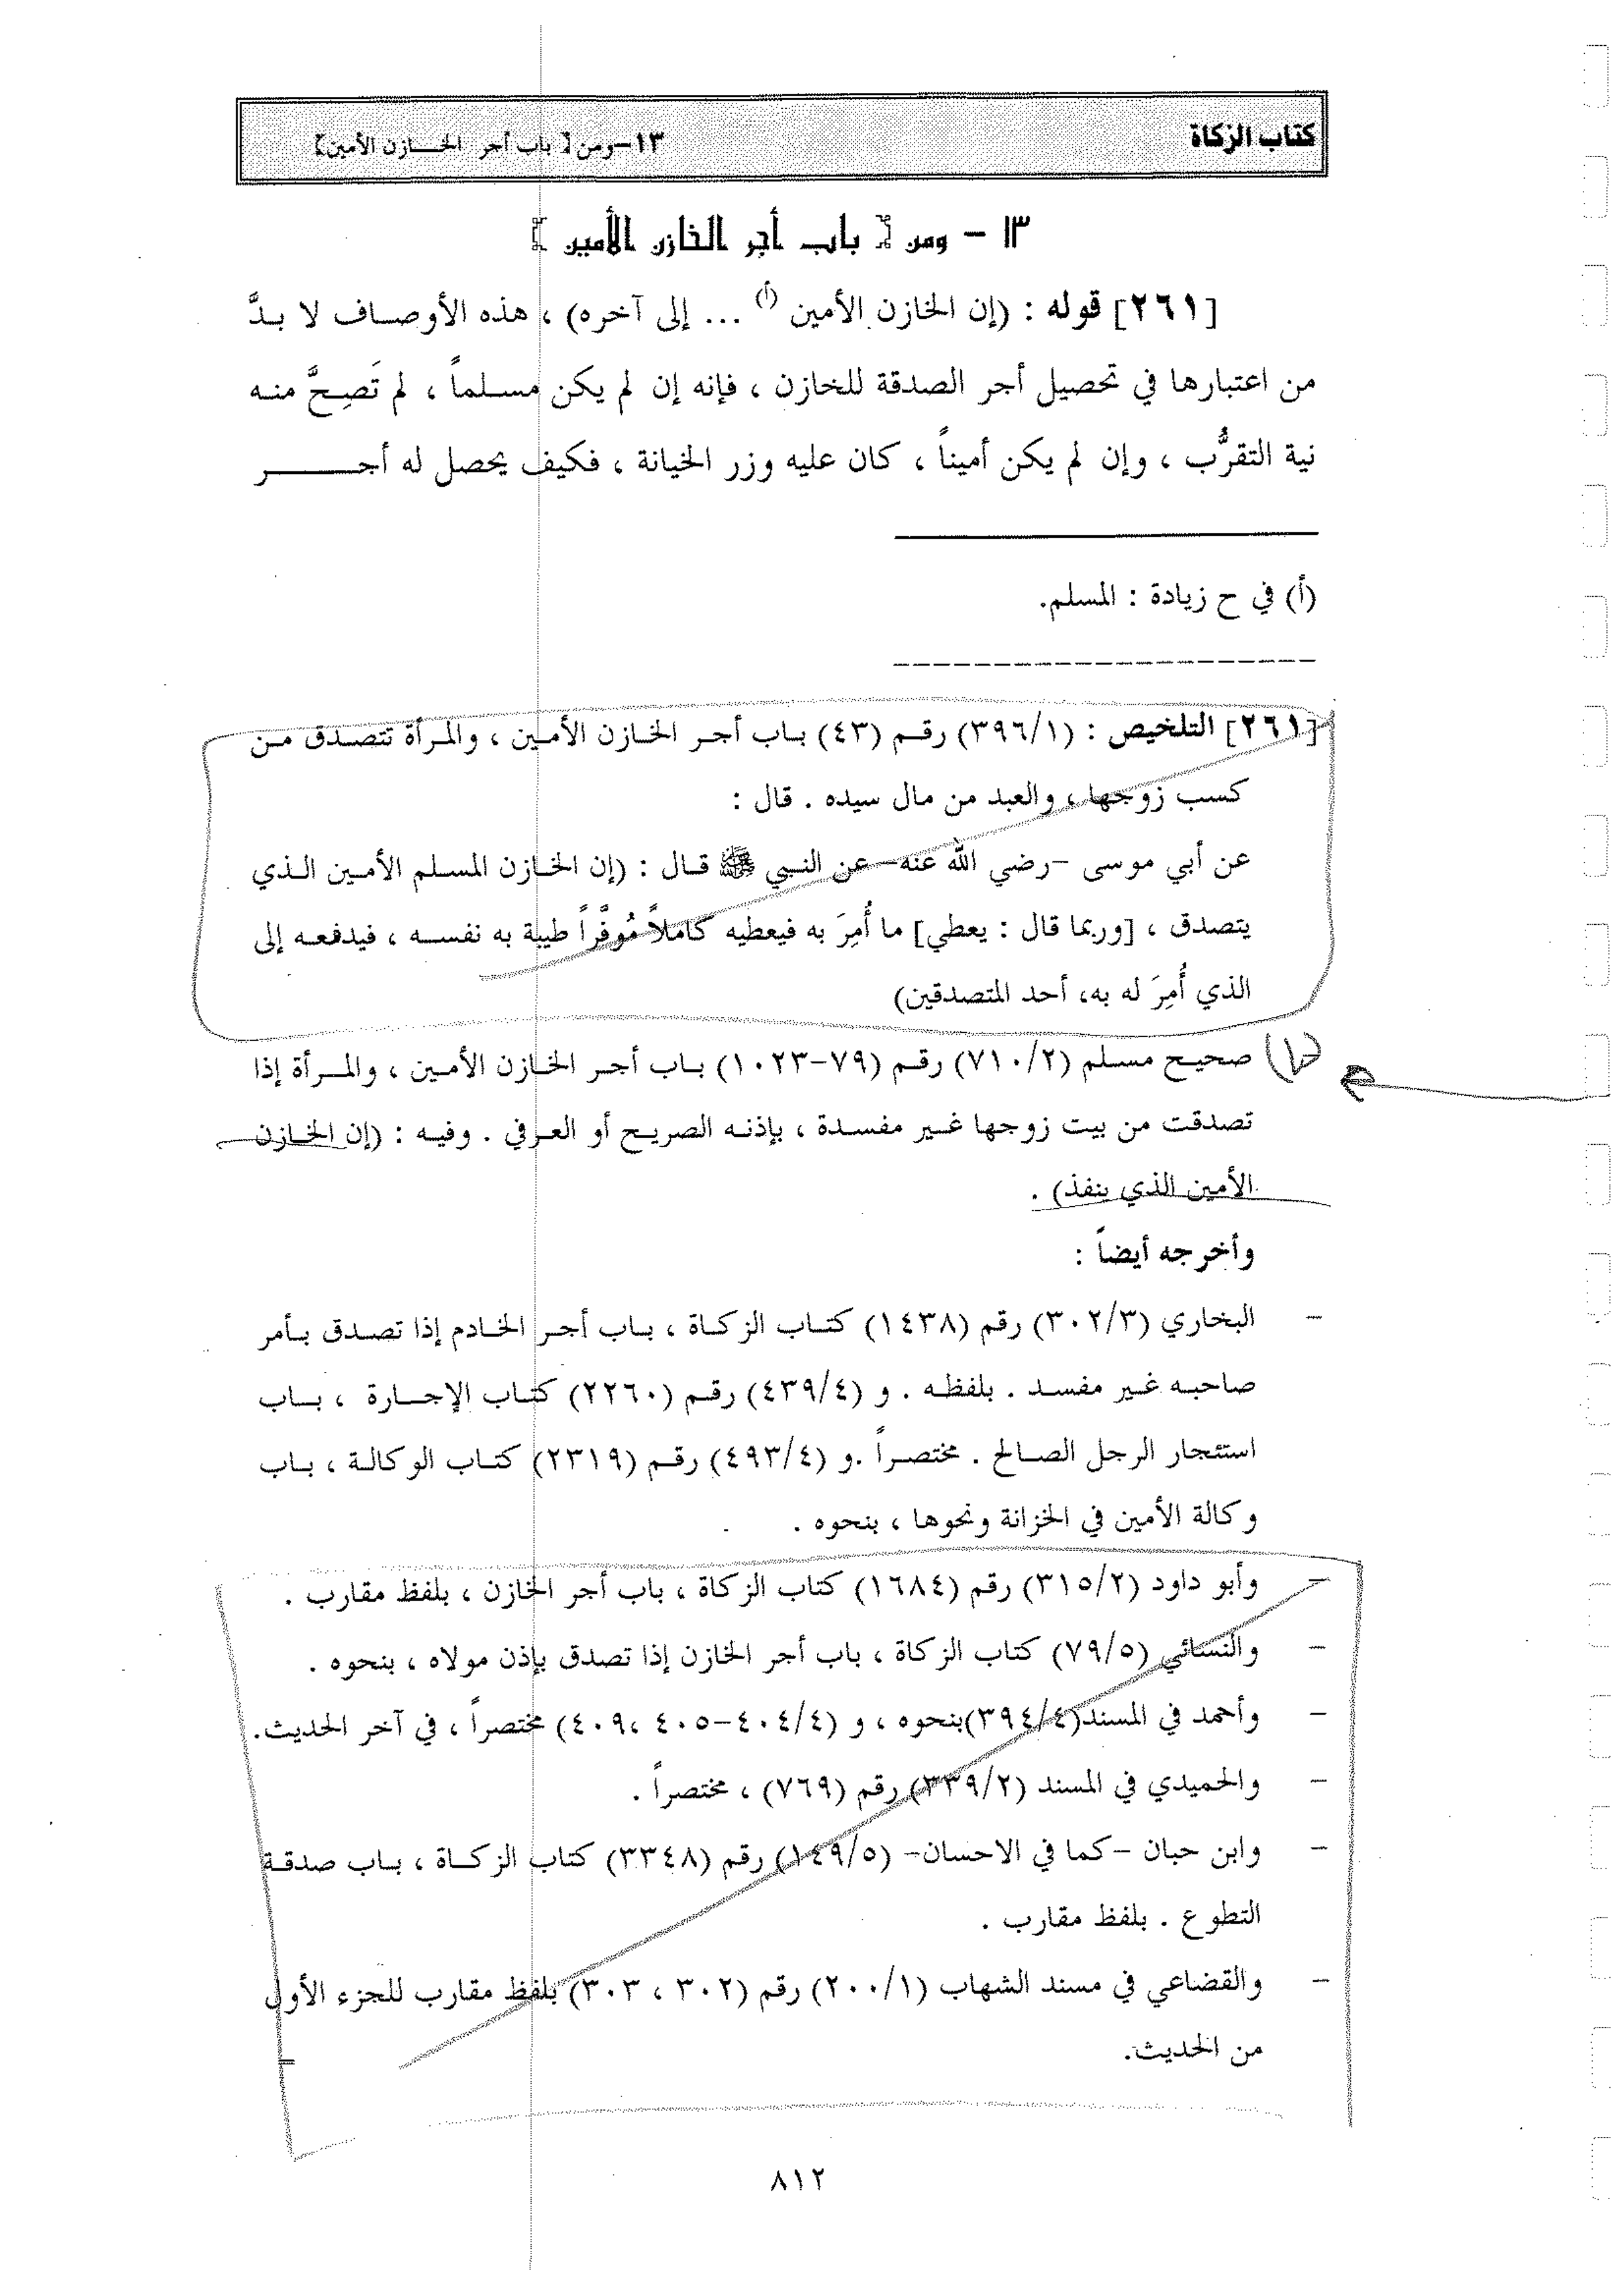 كتاب الزكاة
١٣-ومن [ باب أجر الخازن الأمين]
١٣ - ومن [ باب أجر الخازن الأمين ]
[٢٦١] قوله : (إن الخازن الأمين (أ) ... إلى آخره) ، هذه الأوصاف لا بدَّ
من اعتبارها في تحصيل أجر الصدقة للخازن ، فإنه إن لم يكن مسلماً ، لم تَصِحَّ منه
نية التقرُّب ، وإن لم يكن أميناً ، كان عليه وزر الخيانة ، فكيف يحصل له أجر
(أ) في ح زيادة : المسلم.
[٢٦١] التلخيص : (٣٩٦/١) رقم (٤٣) باب أجر الخازن الأمين ، والمرأة تتصدق من
كسب زوجها ، والعبد من مال سيده . قال :
عن أبي موسى -رضي الله عنه- عن النبي ﷺ قال : (إن الخازن المسلم الأمين الذي
يتصدق ، [وربما قال : يعطي] ما أُمِرَ به فيعطيه كاملاً مُوفَّراً طيبة به نفسه ، فيدفعه إلى
الذي أُمِرَ له به، أحد المتصدقين)
(١) صحيح مسلم (٧١٠/٢) رقم (٧٩-١٠٢٣) باب أجر الخازن الأمين ، والمرأة إذا
تصدقت من بيت زوجها غير مفسدة ، بإذنه الصريح أو العرفي . وفيه : (إن الخازن
الأمين الذي ينفذ) .
وأخرجه أيضاً :
- البخاري (٣٠٢/٣) رقم (١٤٣٨) كتاب الزكاة ، باب أجر الخادم إذا تصدق بأمر
صاحبه غير مفسد . بلفظه . و (٤٣٩/٤) رقم (٢٢٦٠) كتاب الإجارة ، باب
استئجار الرجل الصالح . مختصراً .و (٤٩٣/٤) رقم (٢٣١٩) كتاب الوكالة ، باب
وكالة الأمين في الخزانة ونحوها ، بنحوه .
- وأبو داود (٣١٥/٢) رقم (١٦٨٤) كتاب الزكاة ، باب أجر الخازن ، بلفظ مقارب .
- والنسائي (٧٩/٥) كتاب الزكاة ، باب أجر الخازن إذا تصدق بإذن مولاه ، بنحوه .
- وأحمد في المسند(٣٩٤/٤)بنحوه ، و (٤٠٤/٤-٤٠٥ ،٤٠٩) مختصراً ، في آخر الحديث.
- والحميدي في المسند (٣٣٩/٢) رقم (٧٦٩) ، مختصراً .
- وابن حبان -كما في الاحسان- (١٤٩/٥) رقم (٣٣٤٨) كتاب الزكاة ، باب صدقة
التطوع . بلفظ مقارب .
- والقضاعي في مسند الشهاب (٢٠٠/١) رقم (٣٠٢ ، ٣٠٣) بلفظ مقارب للجزء الأول
من الحديث.
٨١٢